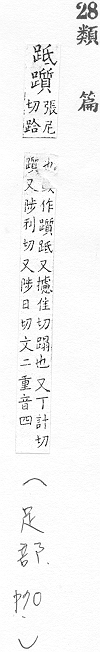 28
類篇
䟡躓 張尼切跲
也或作躓䟡又攄佳切蹋也又丁計切
躓又陟利切又陟日切文二重音四
(足部, 90.)